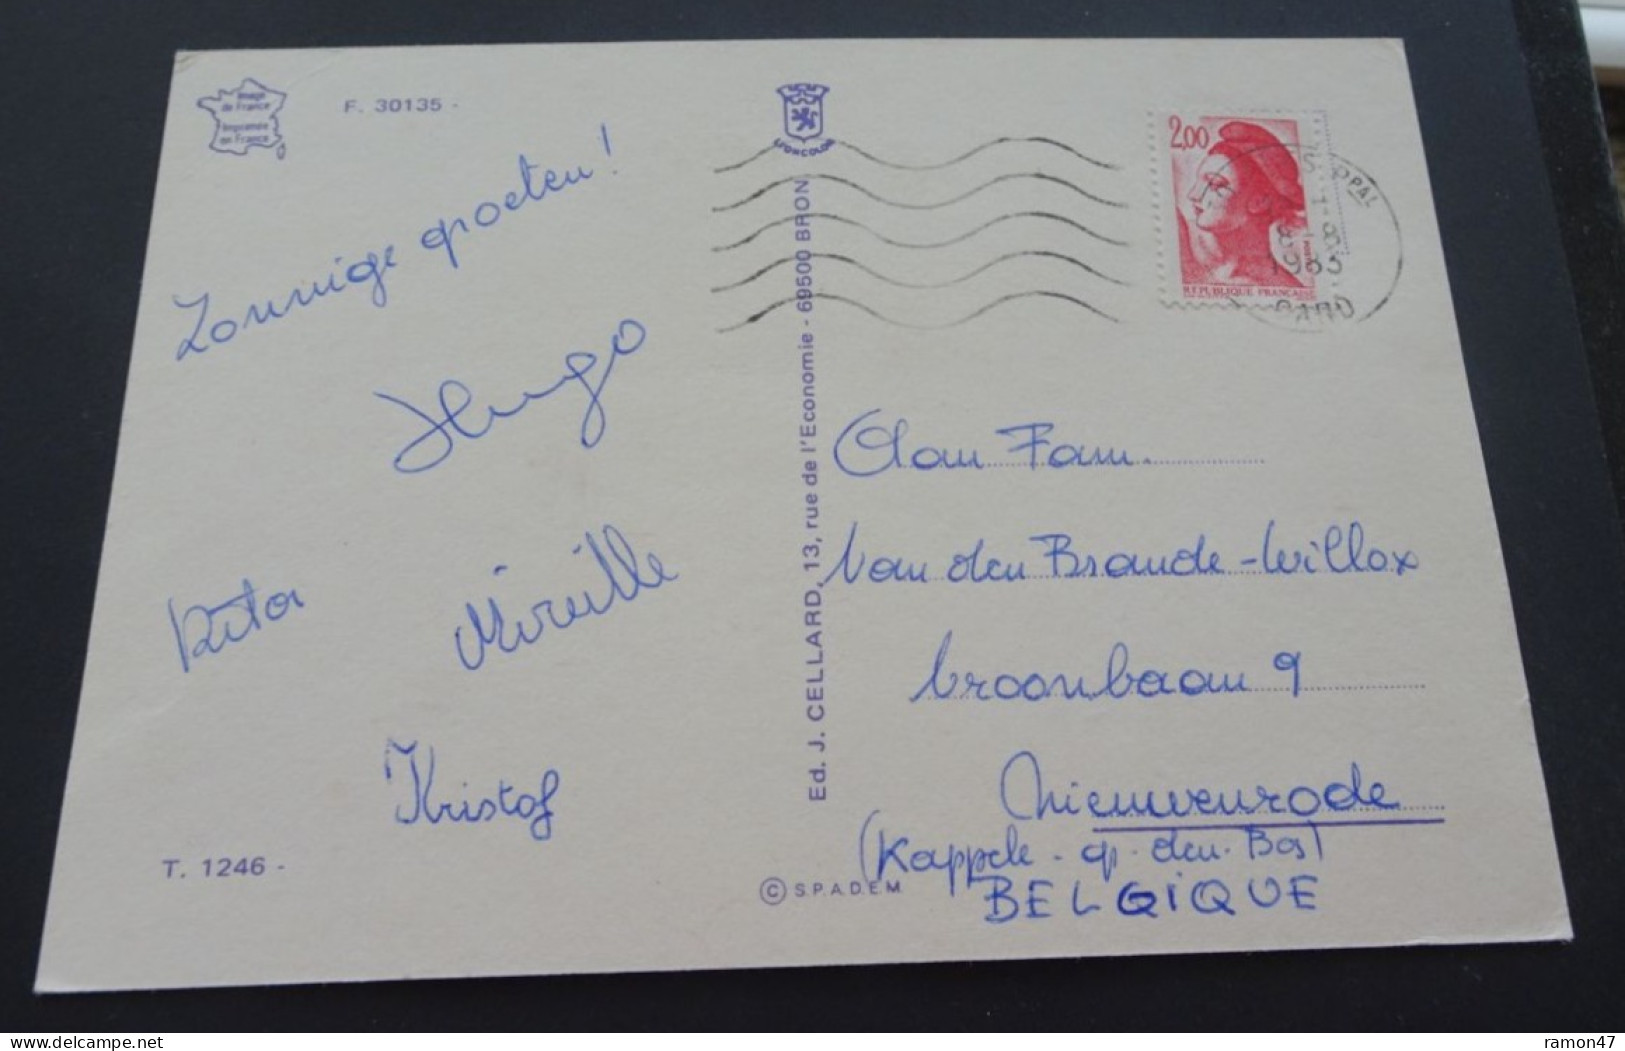 Image
de France
Imprimée
en France
F. 30135 -
LYONCOLOR
2,00
REPUBLIQUE FRANÇAISE
PPAL
1983
GARD
Zonnige groeten!
Hugo
Rita
Mireille
Kristof
T. 1246 -
Ed. J. CELLARD, 13, rue de l'Economie - 69500 BRON
© S.P.A.D.E.M
Aan Fam.
Van den Brande-Willox
Kroonbaan 9
Nieuwenrode
(Kappele-op-den-Bos)
BELGIQUE
ramon47